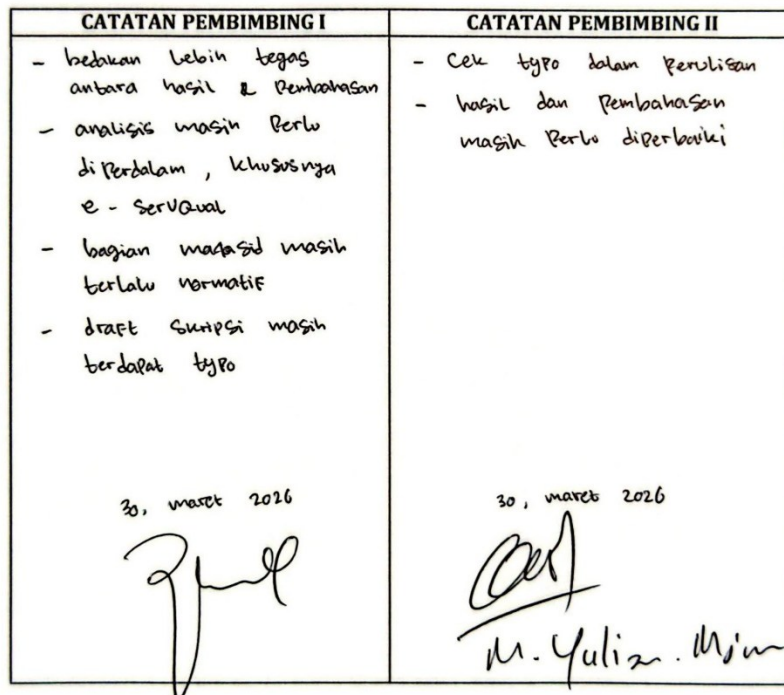 CATATAN PEMBIMBING I
- bedakan lebih tegas
antara hasil & Pembahasan
- analisis masih Perlu
diPerdalam, khususnya
e - serVQual
- bagian maqasid masih
terlalu normatif
- draft skripsi masih
terdapat tyPo
30, maret 2026
CATATAN PEMBIMBING II
- Cek tyPo dalam Penulisan
- hasil dan Pembahasan
masih Perlu diPerbaiki
30, maret 2026
M. Yulian